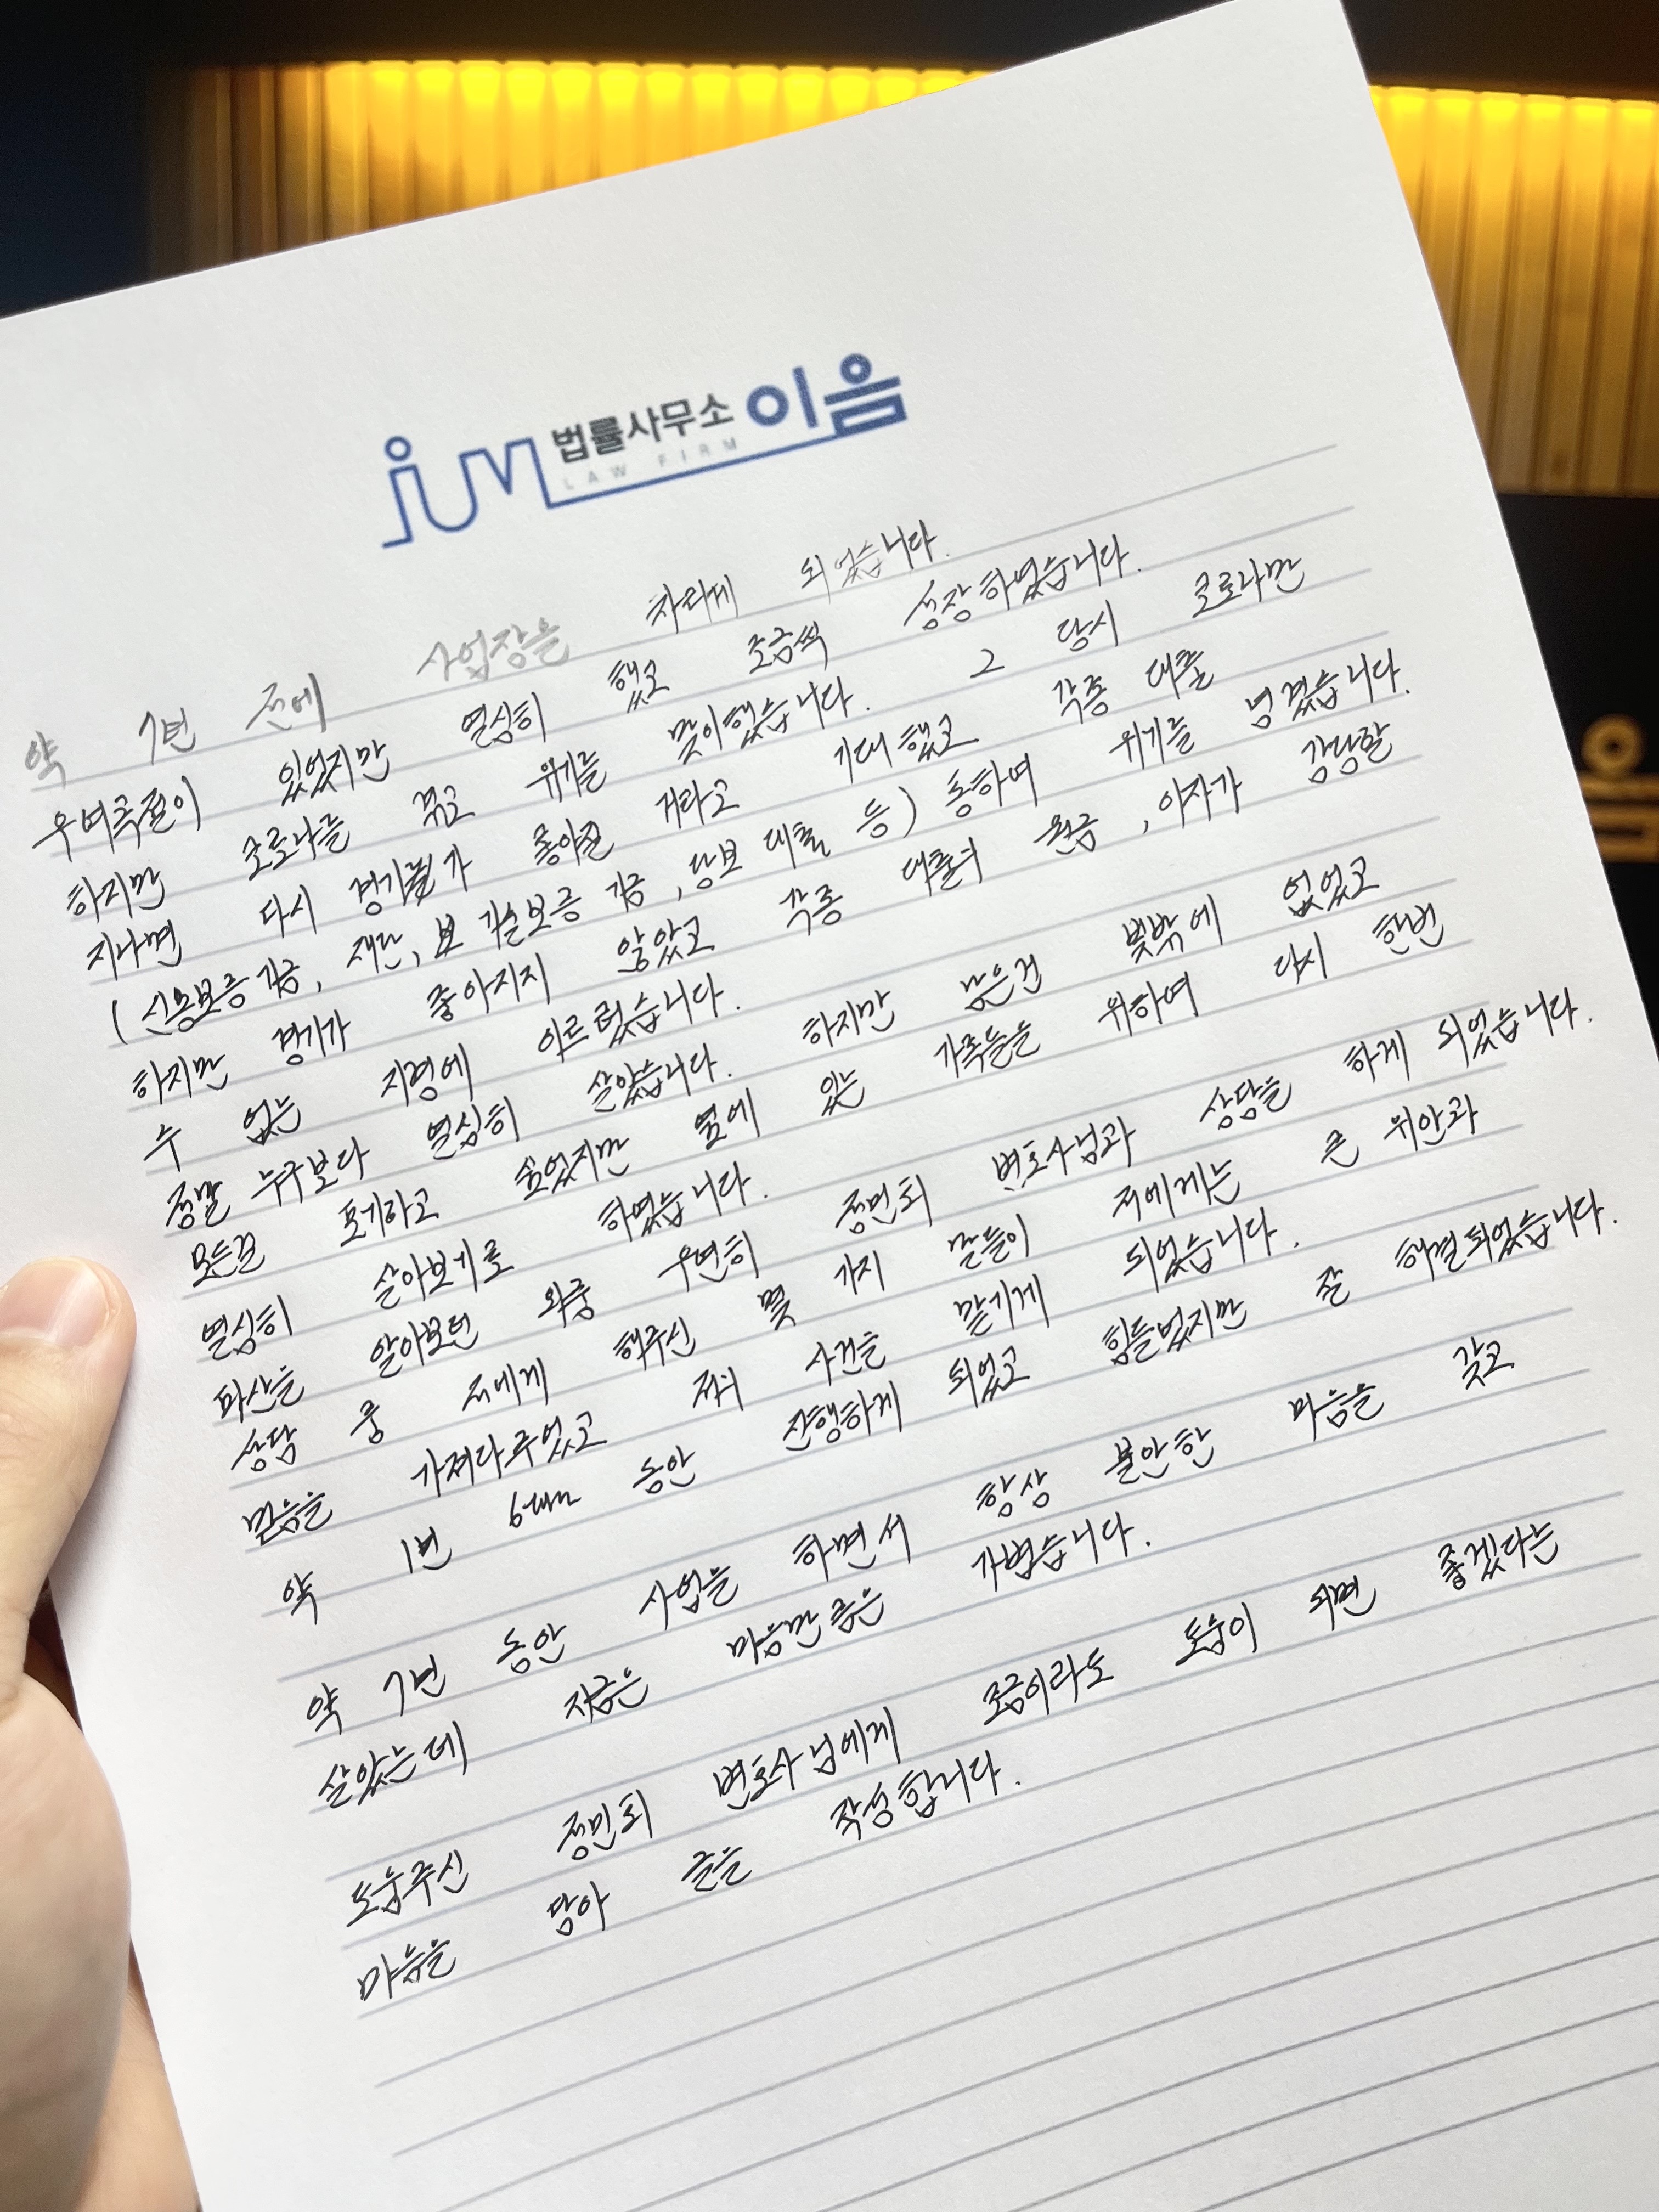 ium 법률사무소 이음
LAW FIRM
약 7년 전에 사업장을 차리게 되었습니다.
우여곡절이 있었지만 열심히 했고 조금씩 성장하였습니다.
하지만 코로나를 겪고 위기를 맞이했습니다. 그 당시 코로나만
지나면 다시 경기가 좋아질 거라고 기대했고 각종 대출
(신용보증기금, 재단, 기술보증기금, 담보대출 등) 통하여 위기를 넘겼습니다.
하지만 경기가 좋아지지 않았고 각종 대출의 원금, 이자가 감당할
수 없는 지경에 이르렀습니다.
정말 누구보다 열심히 살았습니다. 하지만 남은건 빚밖에 없었고
모든걸 포기하고 싶었지만 옆에 있는 가족들을 위하여 다시 한번
열심히 살아보기로 하였습니다.
파산을 알아보던 와중 우연히 정민회 변호사님과 상담을 하게 되었습니다.
상담 중 저에게 해주신 몇 가지 말들이 저에게는 큰 위안과
믿음을 가져다주었고 저의 사건을 맡기게 되었습니다.
약 1년 6개월 동안 진행하게 되었고 힘들었지만 잘 해결되었습니다.
약 7년 동안 사업을 하면서 항상 불안한 마음을 갖고
살았는데 지금은 마음만큼은 가볍습니다.
도움주신 정민회 변호사님에게 조금이라도 도움이 되면 좋겠다는
마음을 담아 글을 작성합니다.